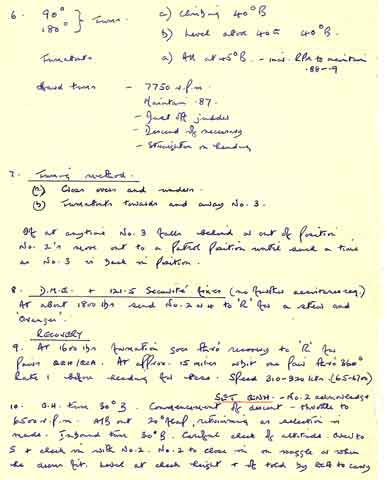 6. 90° 180° } Turns. a) Climbing 40°B
b) Level above 40° 40°B.
Turnabouts a) All at 45°B. - incr. RPM to maintain .88-.9
Hard turns - 7750 r.p.m.
Maintain .87.
- Just off judder
- Descend if necessary
- Straighten on heading
7. Turning method.
(a) Cross overs and unders.
(b) Turnabouts towards and away No. 3.
If at anytime No. 3 falls behind or out of position
No. 2's move out to a patrol position until such a time
as No. 3 is back in position.
8. D.M.E. + 121.5 Securité fixes (no further assistance req.)
At about 1800 lbs send No. 2 to 'R' for a steer and
'Oranges'.
RECOVERY
9. At 1600 lbs formation goes thro' recovery to 'R' for
pairs QGH/GCA. At approx. 15 miles orbit one pair thro 360°
Rate 1 before heading for Base. Speed 310-320 kts. (65-6700)
SET QNH - No. 2 acknowledge
10. O.H. turn 30°B. Commencement of descent - throttle to
6500 r.p.m. A/B out 20° flap, retrimming as selection is
made. Inbound turn 30°B. Careful check of altitude. Over to
5 + check in with No. 2. No. 2 to close in on waggle or when
the down fit. Level at check height + if told by GCA to carry